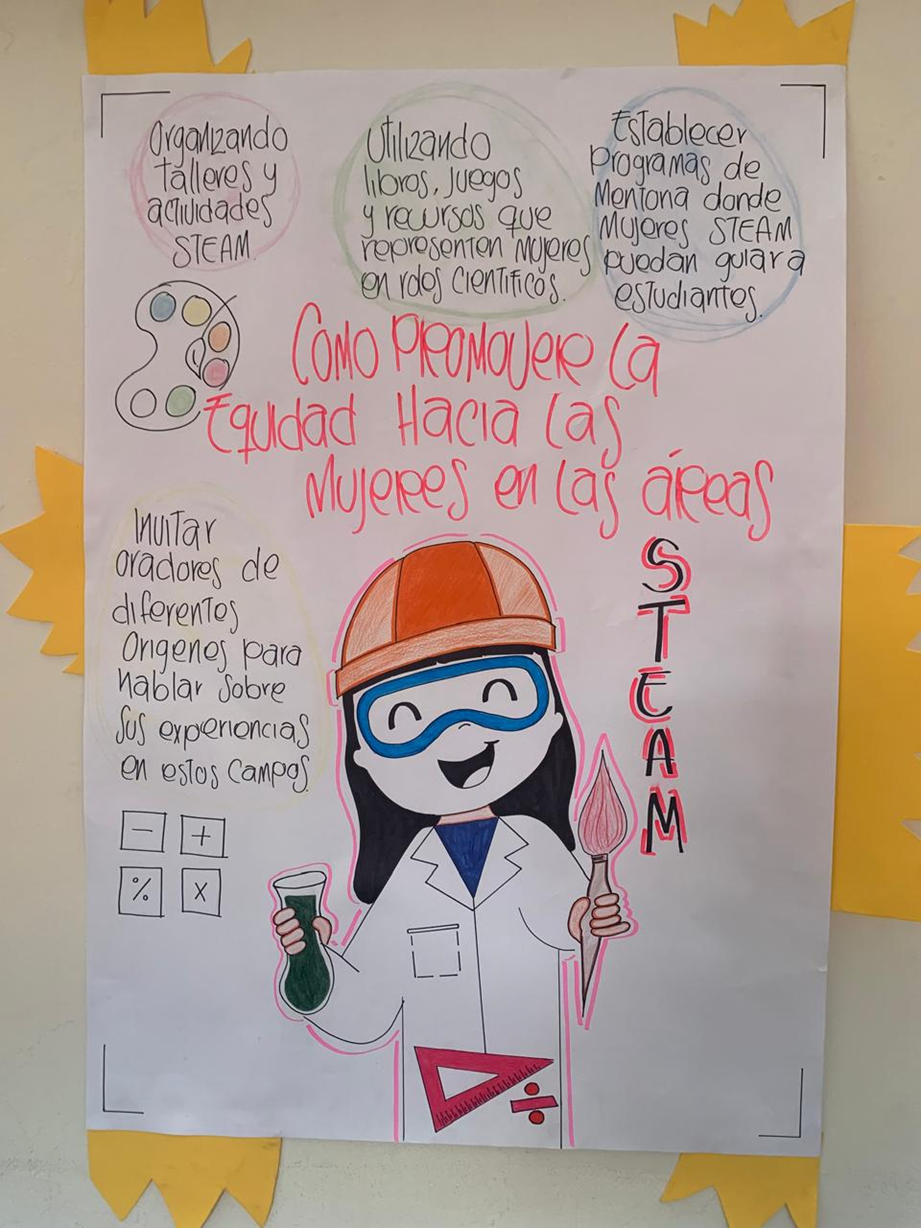 Organizando
talleres y
actividades
STEAM.
Utilizando
libros, juegos
y recursos que
representen mujeres
en roles científicos.
Establecer
programas de
Mentoria donde
Mujeres STEAM
puedan guiar a
estudiantes.
Como PROMOVER la
Equidad Hacia las
Mujeres en las áreas
STEAM
Invitar
oradores de
diferentes
Origenes para
hablar sobre
sus experiencias
en estos campos.
- +
% x
÷